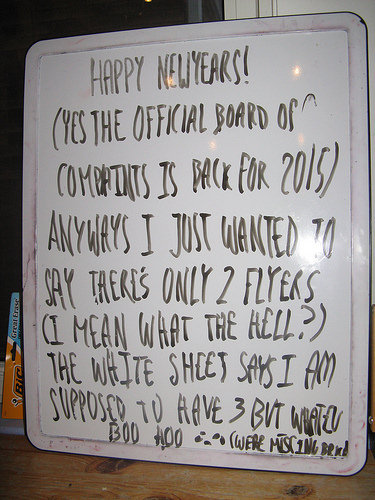 HAPPY NEWYEARS!
(YES THE OFFICIAL BOARD OF
COMPAINTS IS BACK FOR 2015)
ANYWAYS I JUST WANTED TO
SAY THERE'S ONLY 2 FLYERS
(I MEAN WHAT THE HELL?)
THE WHITE SHEET SAYS I AM
SUPPOSED TO HAVE 3 BUT WHATEV
BOO HOO (WERE MISSING
BIC
Great Erase